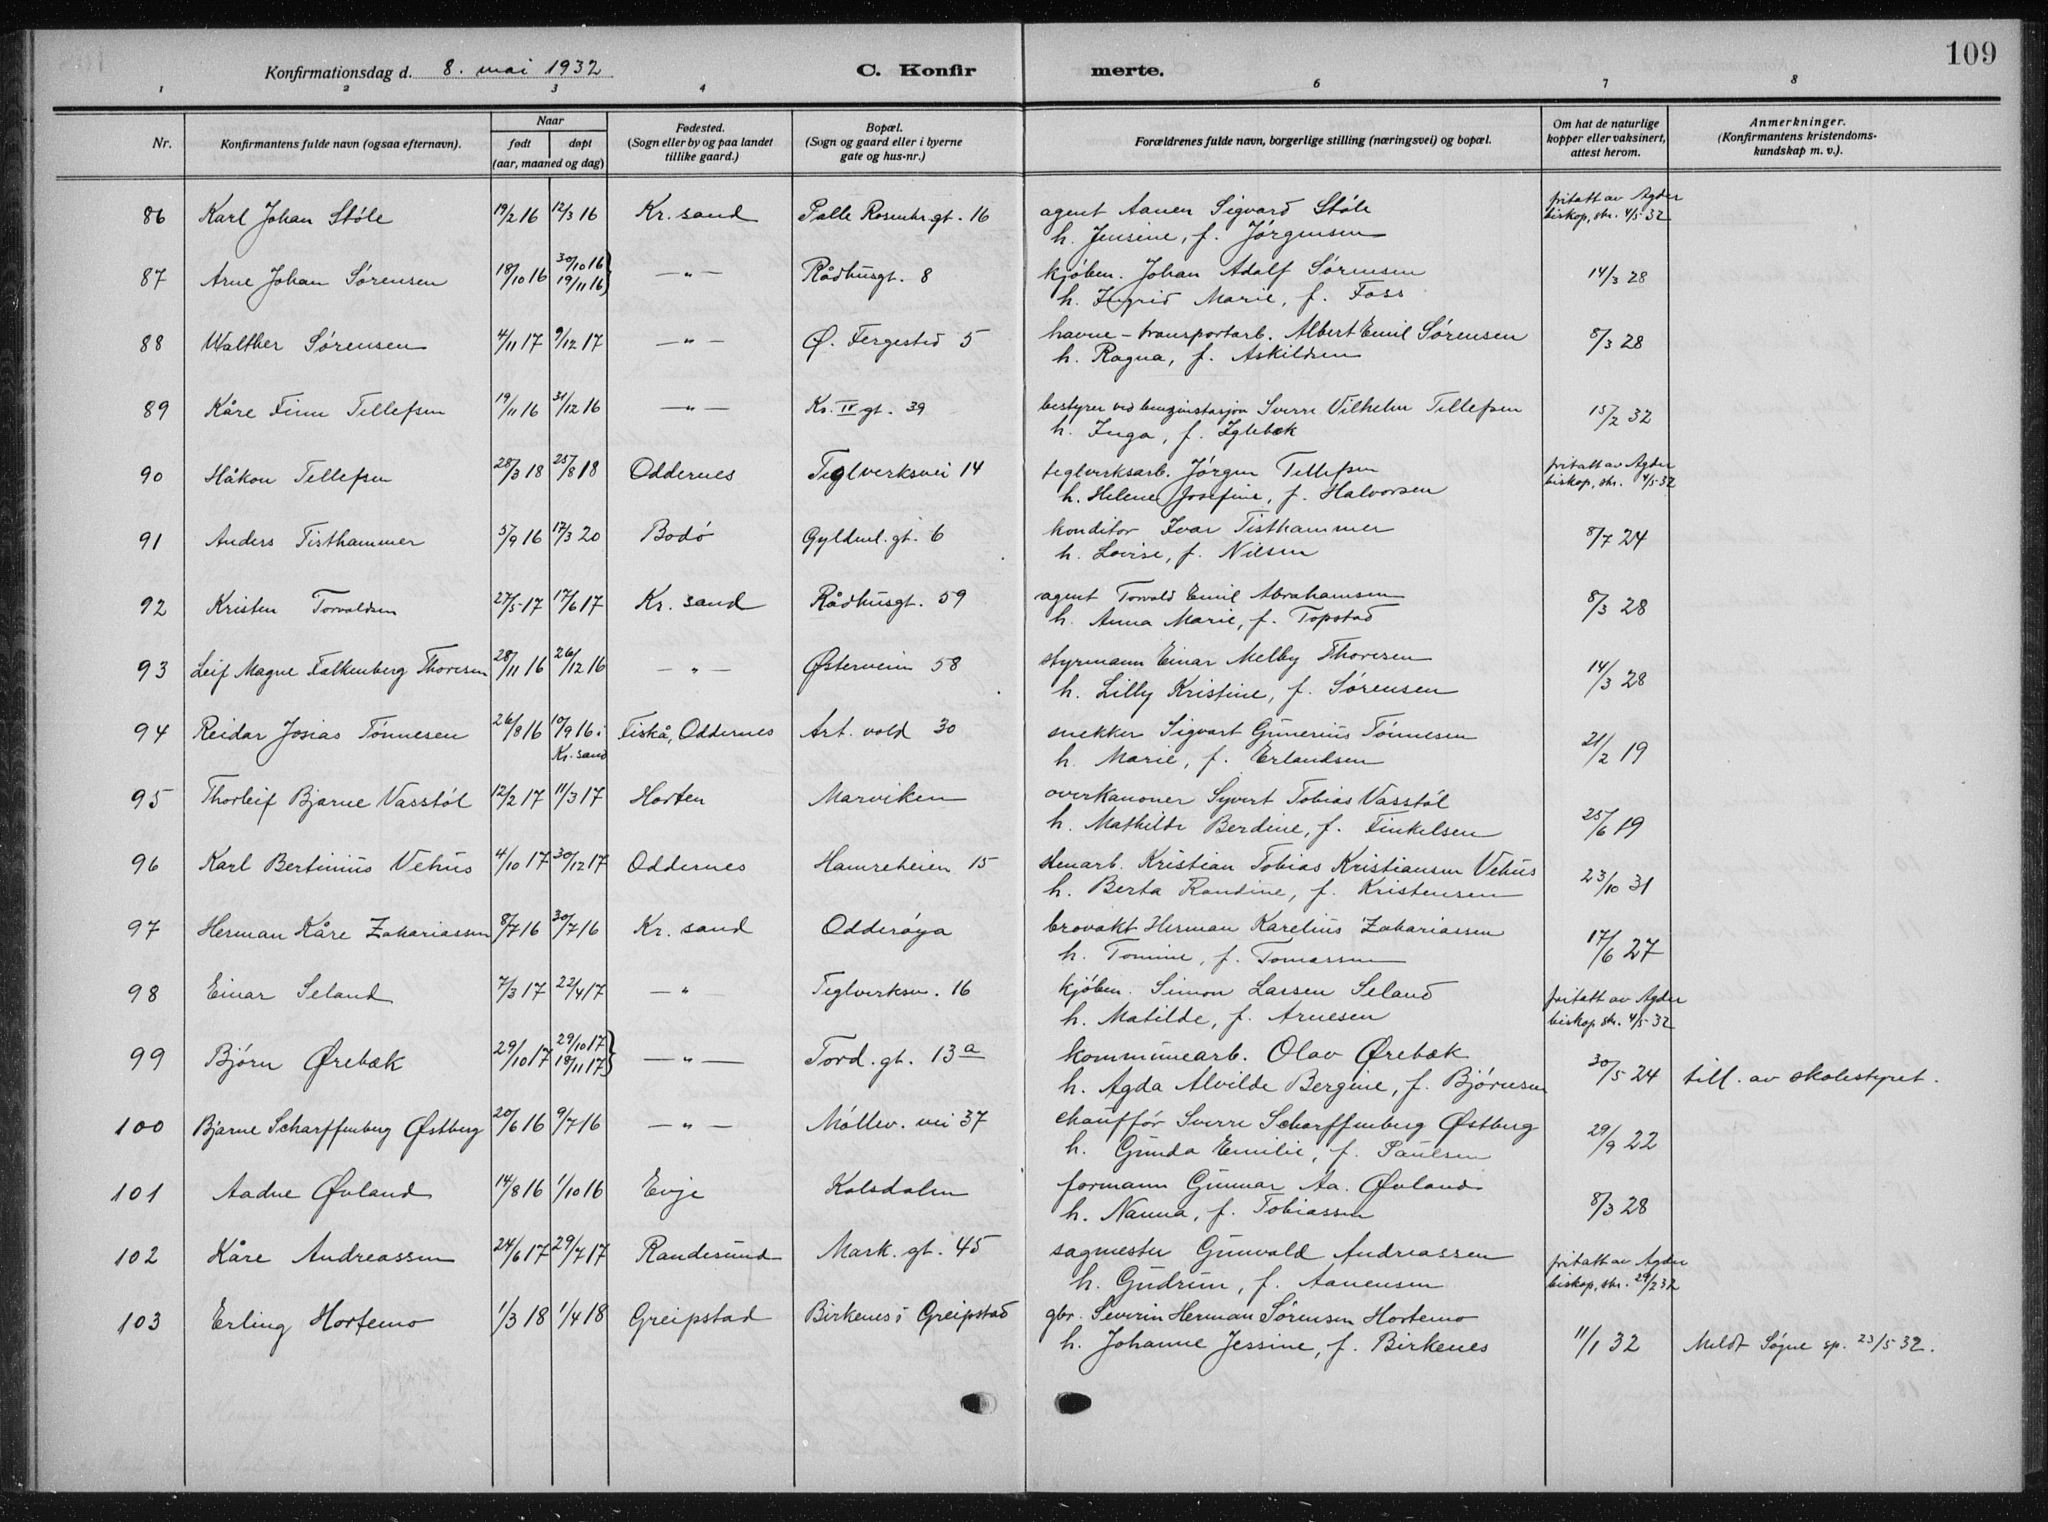 109
Konfirmationsdag d. 8. mai 1932 C. Konfirmerte.
1 2 3 4 6 7 8
Nr. Konfirmantens fulde navn (ogsaa efternavn). Naar født døpt (aar, maaned og dag) Fødested. (Sogn eller by og paa landet tillike gaard.) Bopæl. (Sogn og gaard eller i byerne gate og hus-nr.) Forældrenes fulde navn, borgerlige stilling (næringsvei) og bopæl. Om hat de naturlige kopper eller vaksinert, attest herom. Anmerkninger. (Konfirmantens kristendoms-kundskap m. v.).
86 Karl Johan Støle 19/2 16 12/3 16 Kr. sand Palle Rosenkr. gt. 16 agent Aanen Sigvard Støle fritatt av Agder
h. Jensine, f. Jørgensen biskop, skr. 4/5 32
87 Arne Johan Sørensen 18/10 16 30/10 16 19/11 16} —"— Rådhusgt. 8 kjøbm. Johan Adolf Sørensen 14/3 28
h. Ingrid Marie, f. Foss
88 Walther Sørensen 4/11 17 9/12 17 —"— Ø. Fergested 5 havne-transportarb. Albert Emil Sørensen 8/3 28
h. Ragna, f. Askildsen
89 Kåre Finn Tellefsen 19/11 16 31/12 16 —"— Kr. IV gt. 39 bestyrer ved benzinstasjon Sverre Vilhelm Tellefsen 15/2 32
h. Inga, f. Iglebæk
90 Håkon Tellefsen 28/3 18 25/8 18 Oddernes Teglverksvei 14 teglverksarb. Jørgen Tellefsen fritatt av Agder
h. Helene Josefine, f. Halvorsen biskop, skr. 4/5 32
91 Anders Tisthammer 5/9 16 17/3 20 Bodø Gyldenl. gt. 6 konditor Ivar Tisthammer 8/7 24
h. Lovise, f. Nilsen
92 Kristen Torvaldsen 27/5 17 17/6 17 Kr. sand Rådhusgt. 59 agent Torvald Emil Abrahamsen 8/3 28
h. Anna Marie, f. Topstad
93 Leif Magne Falkenberg Thoresen 28/11 16 26/12 16 —"— Østerveien 58 styrmann Einar Melby Thoresen 14/3 28
h. Lilly Kristine, f. Sørensen
94 Reidar Josias Tønnesen 26/8 16 10/9 16 i Kr. sand Fiskå, Oddernes Art. vold 30 snekker Sigvart Gunerius Tønnesen 21/2 19
h. Marie, f. Erlandsen
95 Thorleif Bjarne Vasstøl 12/2 17 11/3 17 Horten Marviken overkanoner Syvert Tobias Vasstøl 25/6 19
h. Mathilde Berdine, f. Finkelsen
96 Karl Bertinius Vehus 4/10 17 30/12 17 Oddernes Hamreheien 15 stenarb. Kristian Tobias Kristiansen Vehus 23/10 31
h. Berta Randine, f. Kristensen
97 Herman Kåre Zakariassen 8/7 16 30/7 16 Kr. sand Odderøya brovakt Herman Karelius Zakariassen 17/6 27
h. Tomine, f. Tomassen
98 Einar Seland 7/3 17 22/4 17 —"— Teglverksv. 16 kjøbm. Simon Larsen Seland fritatt av Agder
h. Matilde, f. Arnesen biskop skr. 4/5 32
99 Bjørn Ørebæk 29/10 17 29/10 17 18/11 17} —"— Tord. gt. 13 a kommunearb. Olav Ørebæk 30/5 24 till. av skolestyret.
h. Agda Alvilde Bergine, f. Bjørnsen
100 Bjarne Scharffenberg Østberg 20/6 16 9/7 16 —"— Møllev. vei 37 chauffør Sverre Scharffenberg Østberg 29/9 22
h. Gunda Emilie, f. Paulsen
101 Aadne Øvland 14/8 16 1/10 16 Evje Kolsdalen formann Gunnar Aa. Øvland 8/3 28
h. Nanna, f. Tobiassen
102 Kåre Andreassen 24/6 17 29/7 17 Randesund Mark. gt. 45 sagmester Gunvald Andreassen fritatt av Agder
h. Gudrun, f. Aanensen biskop, skr. 29/2 32
103 Erling Hortemo 1/3 18 1/4 18 Greipstad Birkenes i Greipstad gbr. Severin Herman Sørensen Hortemo
h. Johanne Jessine, f. Birkenes 11/1 32 Meldt Søgne sp. 23/5 32.